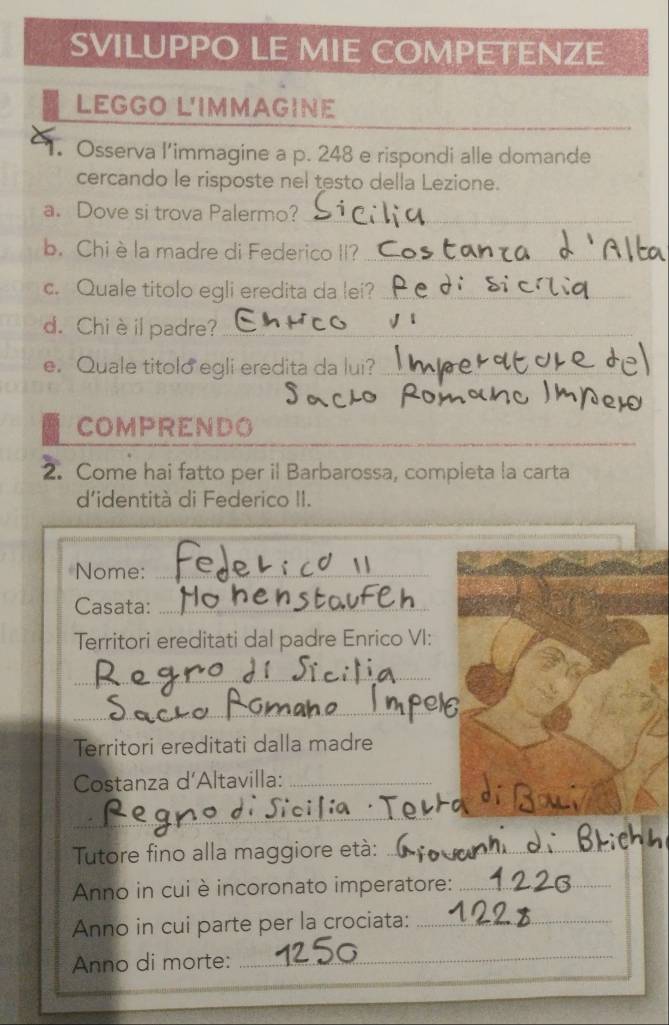 SVILUPPO LE MIE COMPETENZE
LEGGO L'IMMAGINE
1. Osserva l'immagine a p. 248 e rispondi alle domande
cercando le risposte nel testo della Lezione.
a. Dove si trova Palermo? Sicilia
b. Chi è la madre di Federico II? Costanza d'Alta
c. Quale titolo egli eredita da lei? Re di sicilia
d. Chi è il padre? Enrico VI
e. Quale titolo egli eredita da lui? Imperatore del
Sacro Romano Impero
COMPRENDO
2. Come hai fatto per il Barbarossa, completa la carta
d'identità di Federico II.
Nome: Federico II
Casata: Hohenstaufen
Territori ereditati dal padre Enrico VI:
Regno di Sicilia
Sacro Romano Impero
Territori ereditati dalla madre
Costanza d'Altavilla:
Regno di Sicilia. Terra di Bari
Tutore fino alla maggiore età: Giovanni di Brienn
Anno in cui è incoronato imperatore: 1220
Anno in cui parte per la crociata: 1228
Anno di morte: 1250